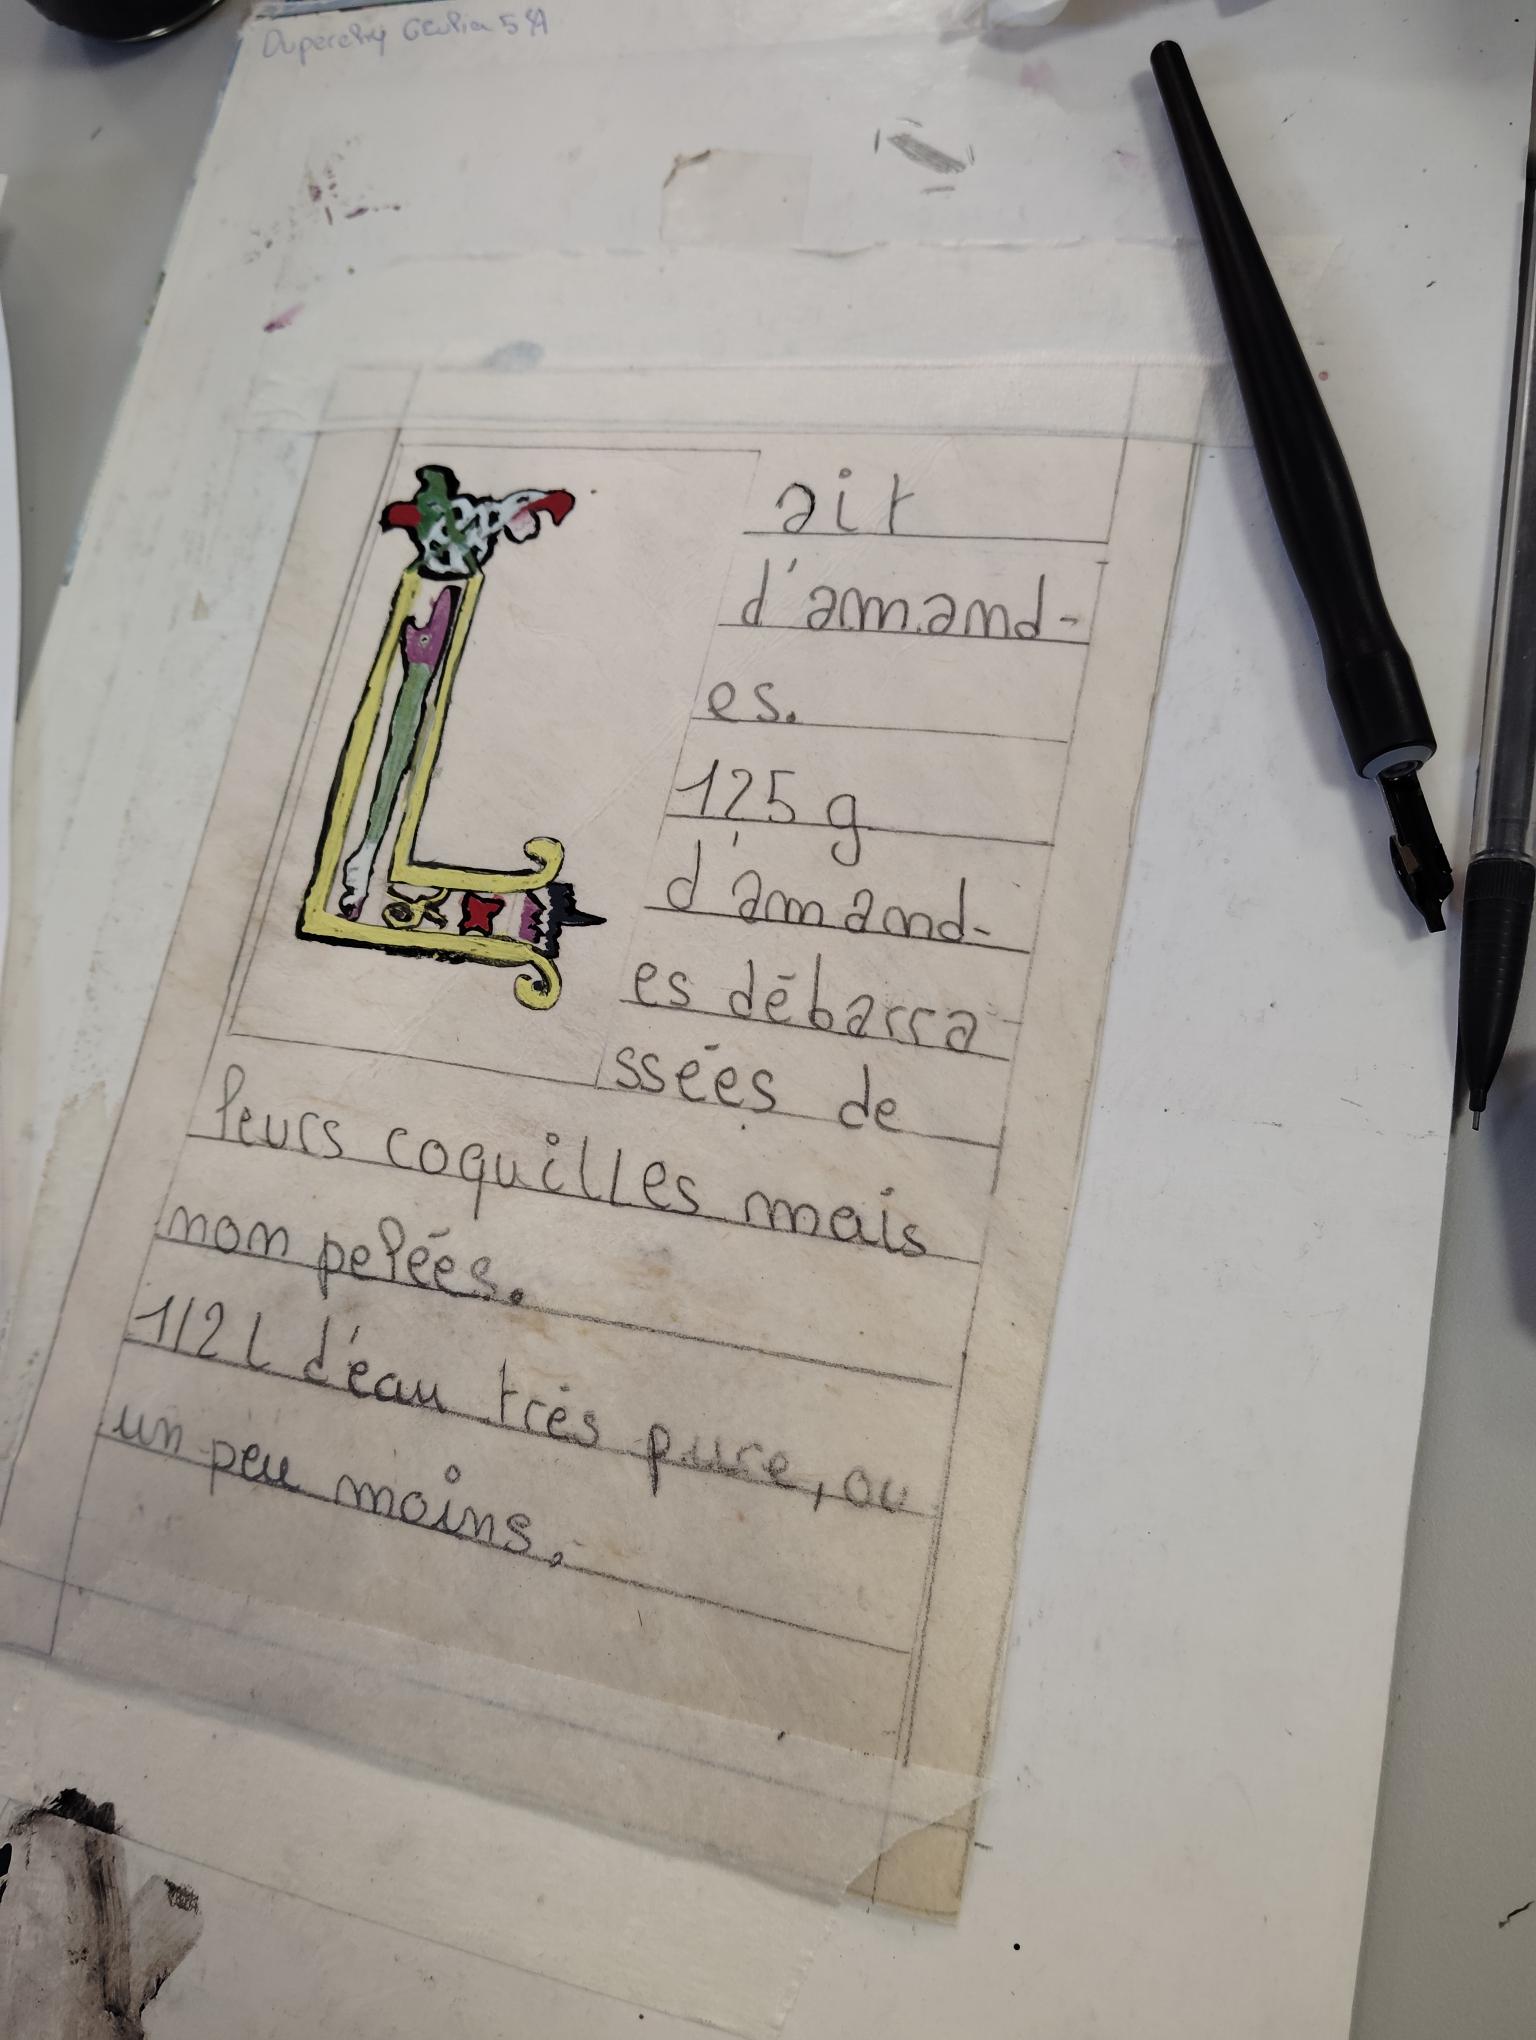 Lait
d'amand-
es.
125 g
d'amand-
es débarra-
ssées de
leurs coquilles mais
non pelées.
1/2 l d'eau très pure, ou
un peu moins.